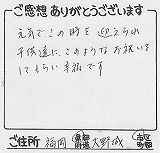 ご感想ありがとうございます
元気でこの時を迎えられ
子供達に、このようなお祝いを
してもらい幸福です
ご住所 福岡 都道府県 大野城 市区町村